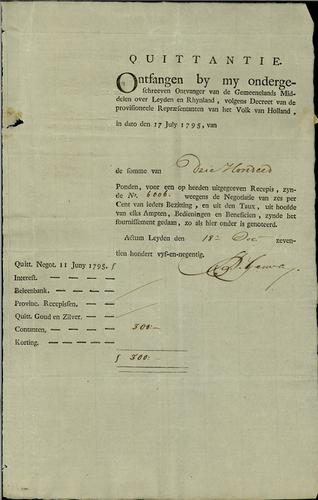 QUITTANTIE.
Ontfangen by my onderge-
schreeven Ontvanger van de Gemeenelands Mid-
delen over Leyden en Rhynland, volgens Decreet van de
provisioneele Repræsentanten van het Volk van Holland,
in dato den 17 July 1795, van
de somme van Drie Honderd
Ponden, voor een op heeden uitgegeeven Recepis, zyn-
de No. 6006. weegens de Negotiatie van zes per
Cent van ieders Bezitting, en uit den Taux, uit hoofde
van elks Ampten, Bedieningen en Beneficien, zynde het
fournissement gedaan, zo als hier onder is genoteerd.
Actum Leyden den 18e Dec. zeven-
tien hondert vyf-en-negentig.
Quitt. Negot. 11 Juny 1795. ƒ
Interest.
Beleenbank.
Provinc. Recepissen.
Quitt. Goud en Zilver.
Contanten, 300:-
Korting.
ƒ 300:-